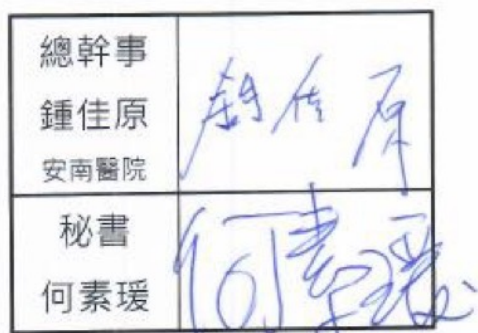 總幹事
鍾佳原
安南醫院
鍾佳原
秘書
何素瑗
何素瑗